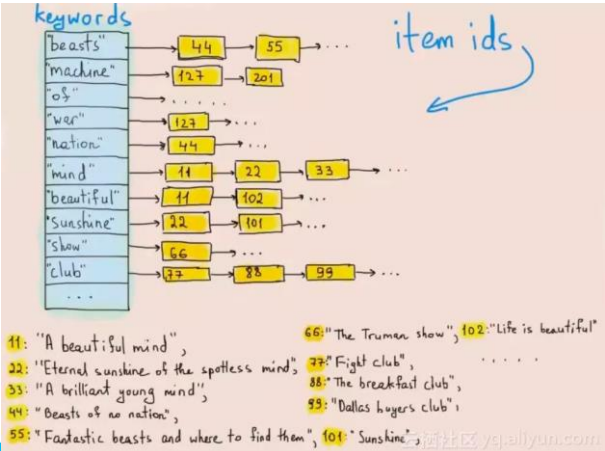 keywords
item ids
"beasts" 44 55 ...
"machine" 127 201
"of" .....
"war" 127 ...
"nation" 44 ...
"mind" 11 22 33 ...
"beautiful" 11 102 ...
"sunshine" 22 101 ...
"show" 66 ...
"club" 77 88 99 ...
...
11: "A beautiful mind",
22: "Eternal sunshine of the spotless mind",
33: "A brilliant young mind",
44: "Beasts of no nation",
55: "Fantastic beasts and where to find them", 101: "Sunshine",
66: "The Truman show", 102: "Life is beautiful"
77: "Fight club", .....
88: "The breakfast club",
99: "Dallas buyers club",
云栖社区 yq.aliyun.com